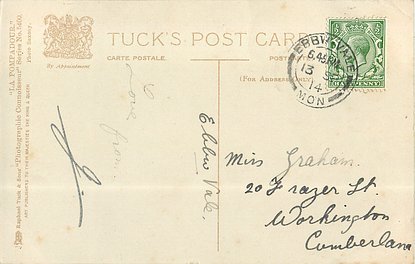 TUCK'S POST CARD
CARTE POSTALE
(For Address Only)
By Appointment
"LA POMPADOUR."
Photo Savory.
Raphael Tuck & Sons' "Photographic Connoisseur" Series No.
ART PUBLISHERS TO THEIR MAJESTIES THE KING & QUEEN
EBBW VALE
13
14
MON
Love from
Ebbw Vale.
Miss Graham.
20 Frazer St.
Workington
Cumberland